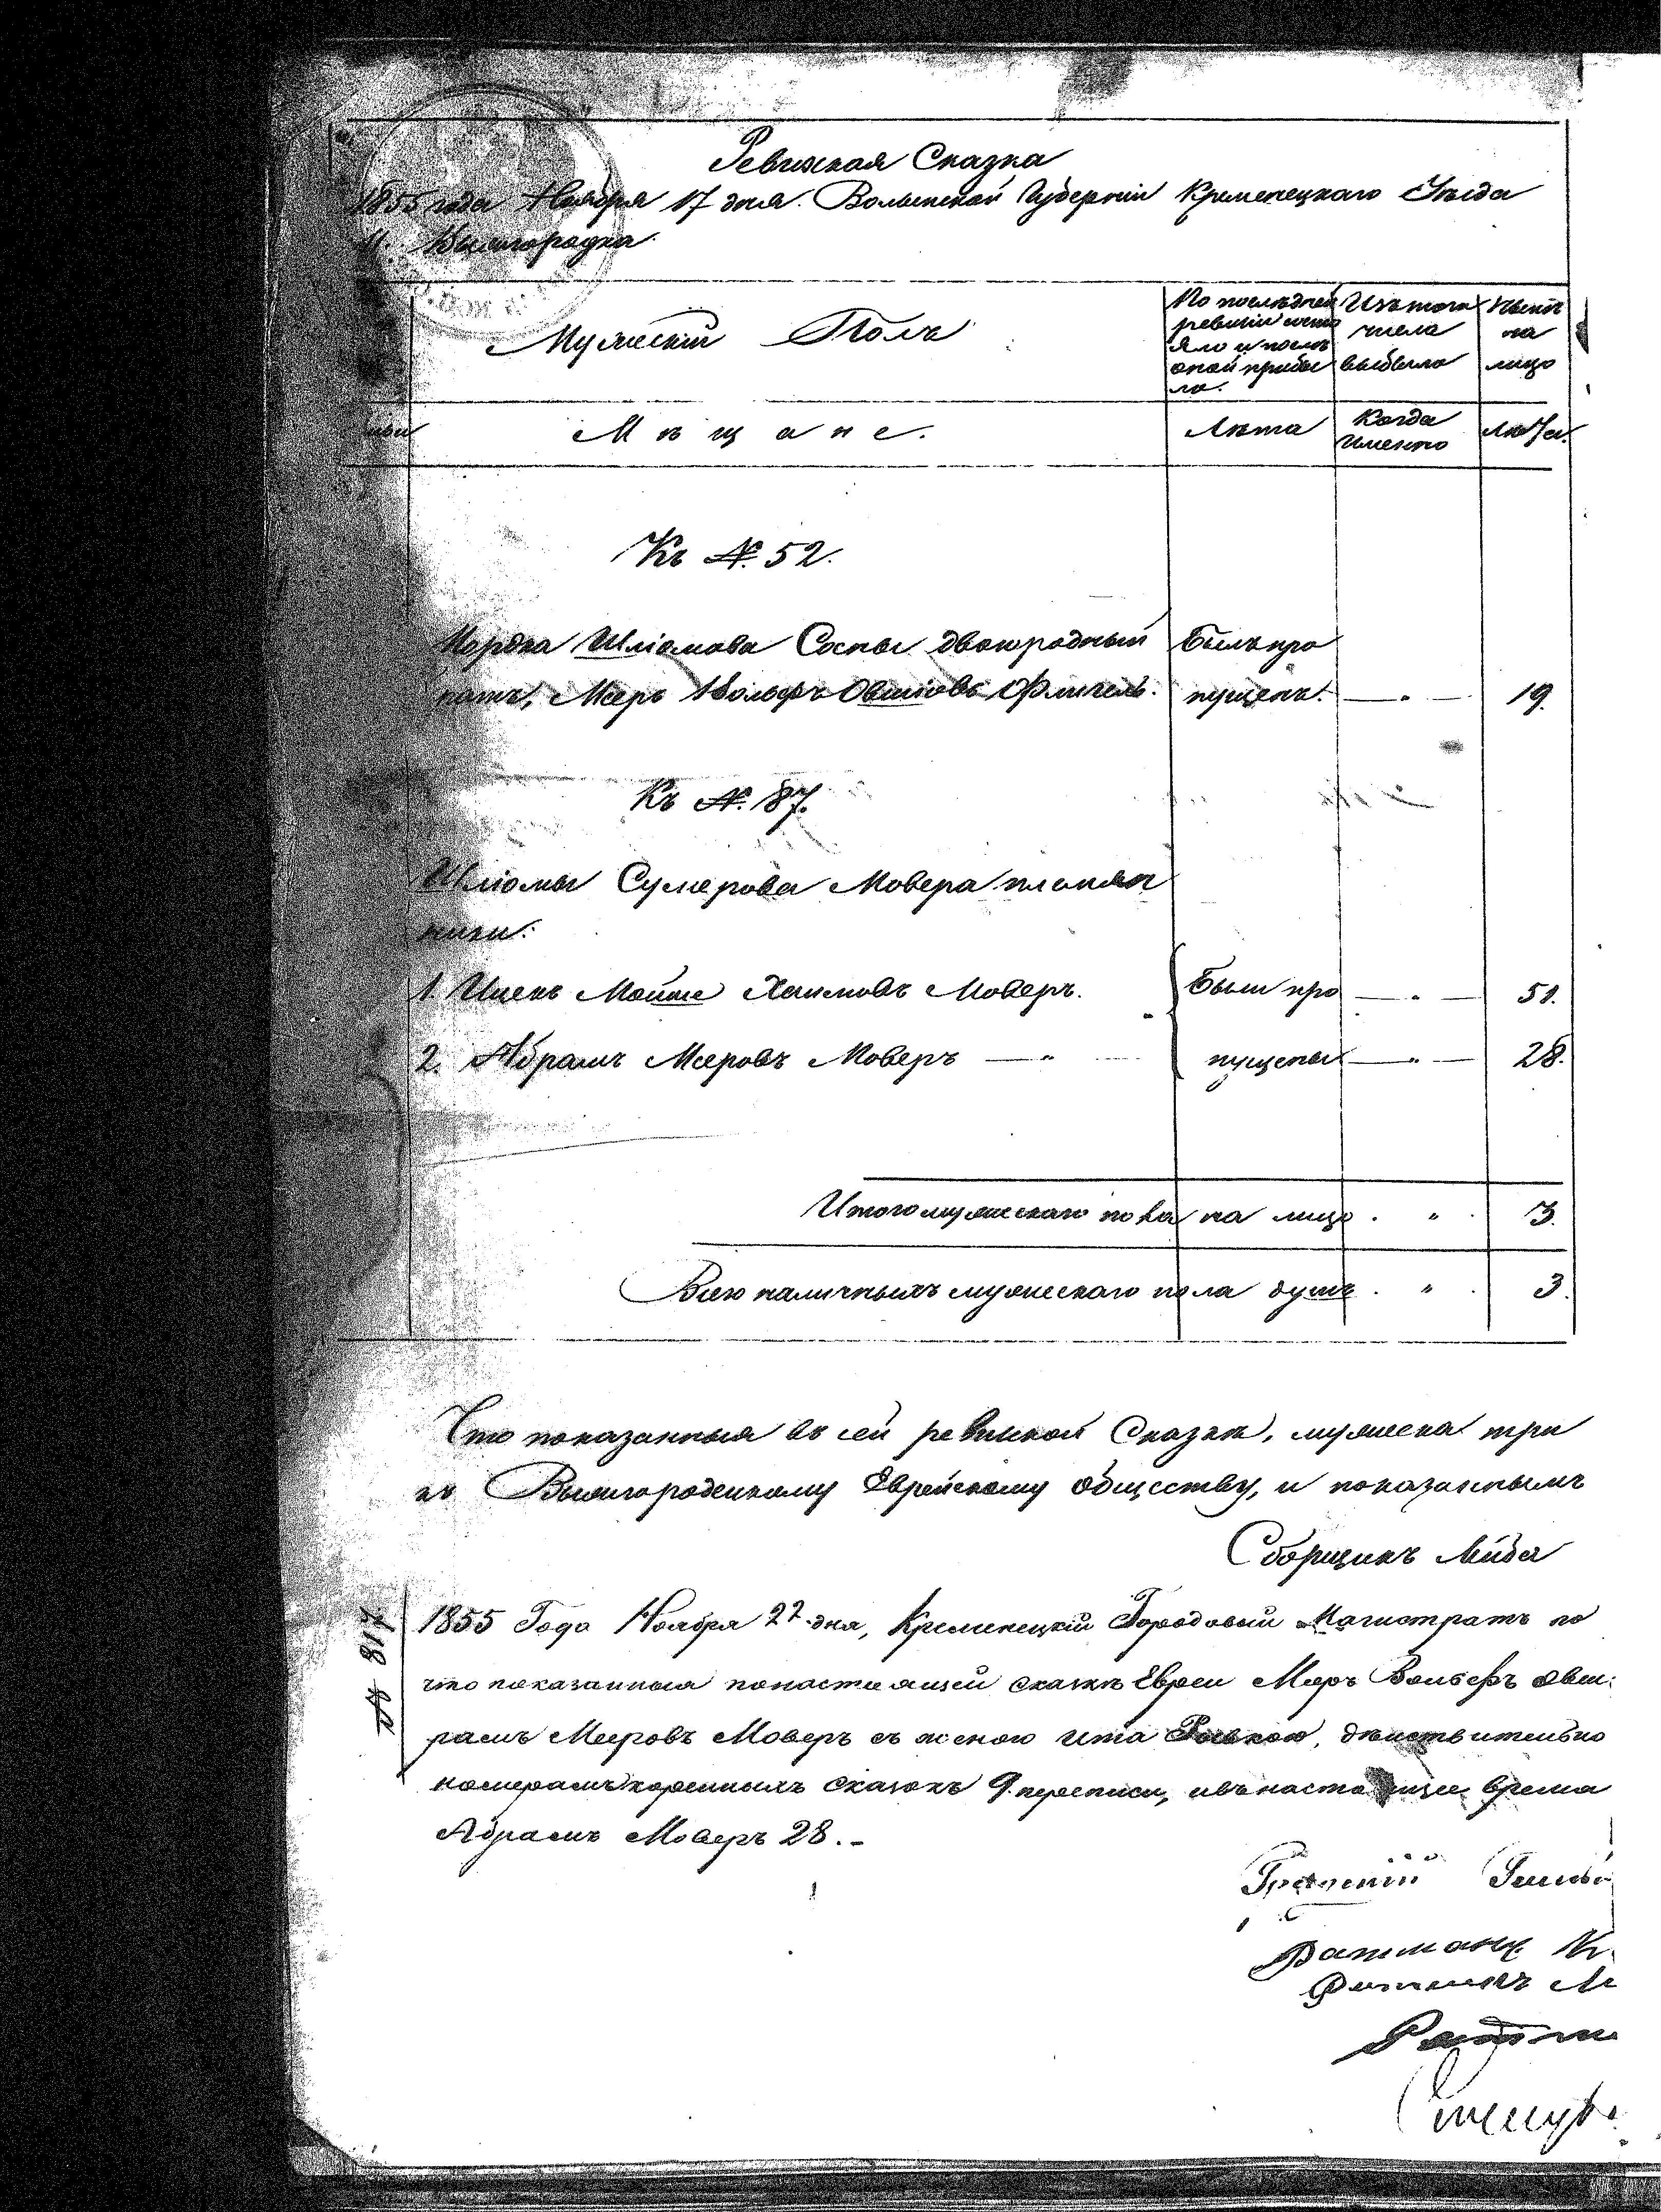 Ревижская Сказка
1855 года Ноября 17 дня. Волынской Губерніи Кременецкаго Уезда
М. Вышгородка.
Мужескій Полъ
По последней
ревизіи состо
яло и посль
оной прибы
ло.
Изъ того
числа
выбыло
Ныне
на
лицо
Мѣщане.
Лѣта
Когда
именно
Лѣта.
Къ №. 52.
Мордка Шліомова Сосны двоюродный
братъ, Меръ Вольфъ Овшіовъ Флигель.
Былъ про
пущенъ. — " — 19.
Къ №. 87.
Шліомы Сумерова Мовера племян
ники:
1. Ицекъ Мойше Хаимовъ Моверъ. Были про — " — 51.
2. Абрамъ Мееровъ Моверъ — " — пущены — " — 28.
Итого мужескаго пола на лицо . " . 3.
Всего наличныхъ мужескаго пола душъ . " . 3.
Что показанныя въ сей ревижской Сказкѣ, мужеска три
къ Вышгородецкому Еврейскому Обществу, и показаннымъ
Сборщикъ Лейба
№ 817
1855 Года Ноября 22 дня, Кременецкій Городовый Магистратъ по
что показанныя понастоящей сказкѣ Евреи Меръ Вольфъ Овш:
рамъ Мееровъ Моверъ съ женою Ита, дѣйствительно
номерамъ коренныхъ сказокъ 9 переписи, ивънастоящее время
Абрамъ Моверъ 28. -
Ратманъ
Ратманъ